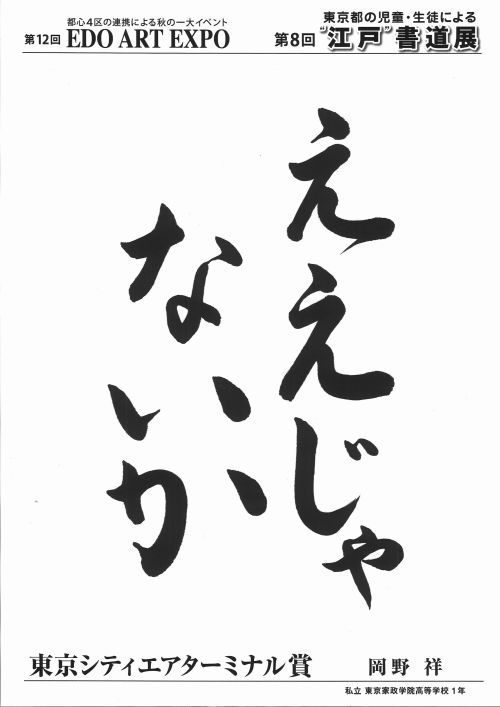 都心4区の連携による秋の一大イベント
第12回 EDO ART EXPO
東京都の児童・生徒による
第8回 "江戸"書道展
ええじゃ
ないか
東京シティエアターミナル賞
岡野 祥
私立 東京家政学院高等学校 1年